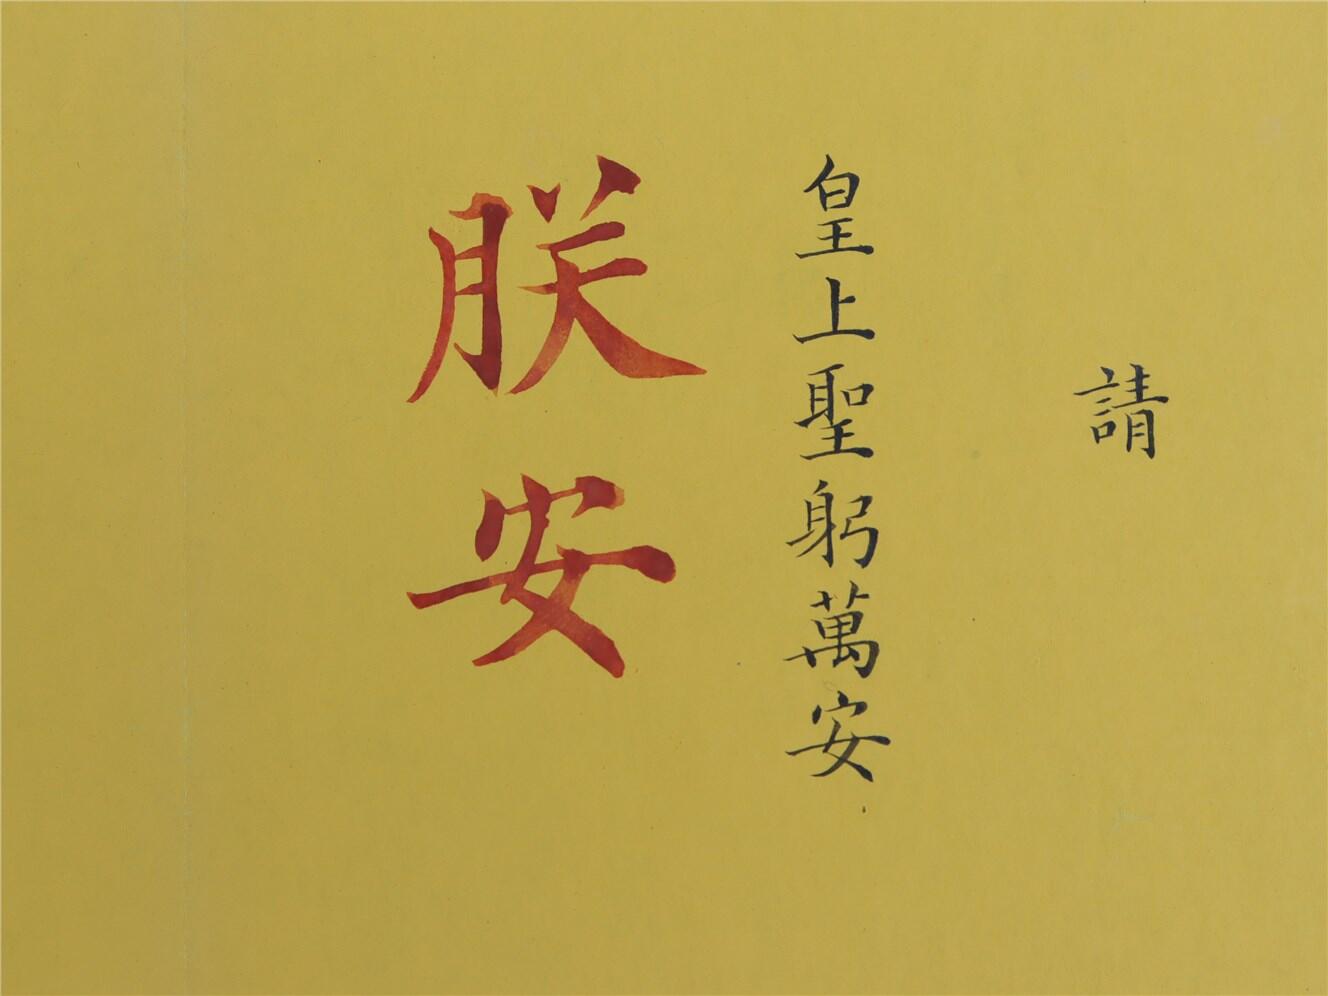 請
皇上聖躬萬安
朕安